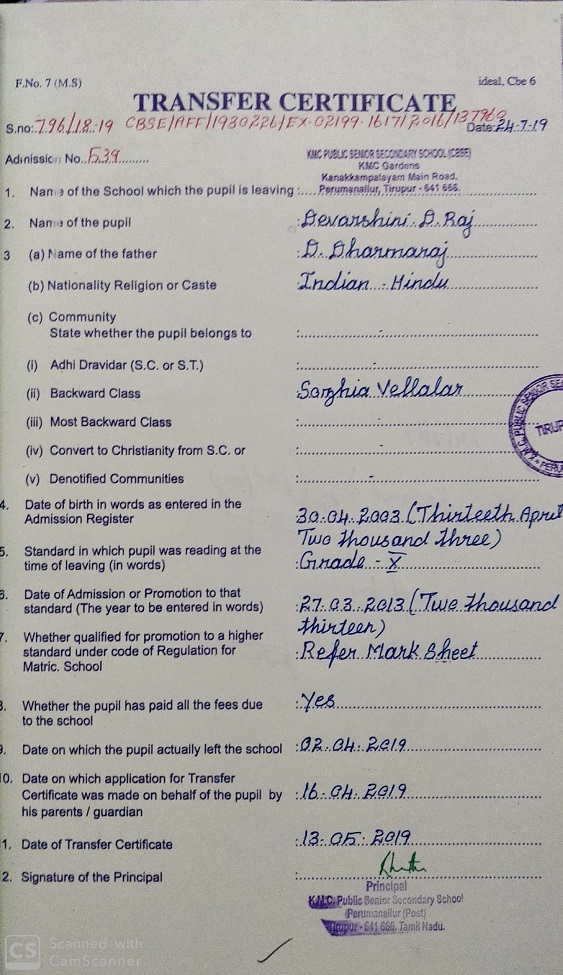 F.No. 7 (M.S)
ideal, Cbe 6
TRANSFER CERTIFICATE
S.no: 796/18-19 CBSE/AFF/1930226/EX-02199-1617/2016/137960
Date: 24-7-19
Admission No. 539
KMC PUBLIC SENIOR SECONDARY SCHOOL (CBSE)
KMC Gardens
Kanakkampalayam Main Road,
1. Name of the School which the pupil is leaving : Perumanallur, Tirupur - 641 666.
2. Name of the pupil : Devarshini. D. Raj
3 (a) Name of the father : D. Dharmaraj
(b) Nationality Religion or Caste : Indian - Hindu
(c) Community
State whether the pupil belongs to : -
(i) Adhi Dravidar (S.C. or S.T.) : -
(ii) Backward Class : Sozhia Vellalar
(iii) Most Backward Class : -
(iv) Convert to Christianity from S.C. or : -
(v) Denotified Communities : -
4. Date of birth in words as entered in the
Admission Register : 30.04.2003 (Thirteeth April
Two thousand three)
5. Standard in which pupil was reading at the
time of leaving (in words) : Grade - X
6. Date of Admission or Promotion to that
standard (The year to be entered in words) : 27.03.2013 (Two thousand
thirteen)
7. Whether qualified for promotion to a higher
standard under code of Regulation for : Refer Mark Sheet
Matric. School
8. Whether the pupil has paid all the fees due : Yes
to the school
9. Date on which the pupil actually left the school : 02.04.2019
10. Date on which application for Transfer
Certificate was made on behalf of the pupil by : 16.04.2019
his parents / guardian
11. Date of Transfer Certificate : 13.05.2019
12. Signature of the Principal :
Principal
K.M.C. Public Senior Secondary School
Perumanallur (Post)
Tirupur - 641 666, Tamil Nadu.
CS Scanned with
CamScanner